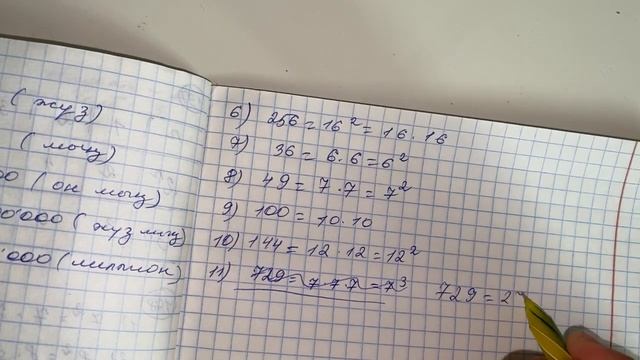 (жуз)
(моцу)
00 (он моцу)
0'000 (жуз моцу)
'000 (миллион)
6) 256 = 16² = 16 · 16
7) 36 = 6 · 6 = 6²
8) 49 = 7 · 7 = 7²
9) 100 = 10 · 10
10) 144 = 12 · 12 = 12²
11) 729 = 7 · 7 · 7 = 7³
729 = 2